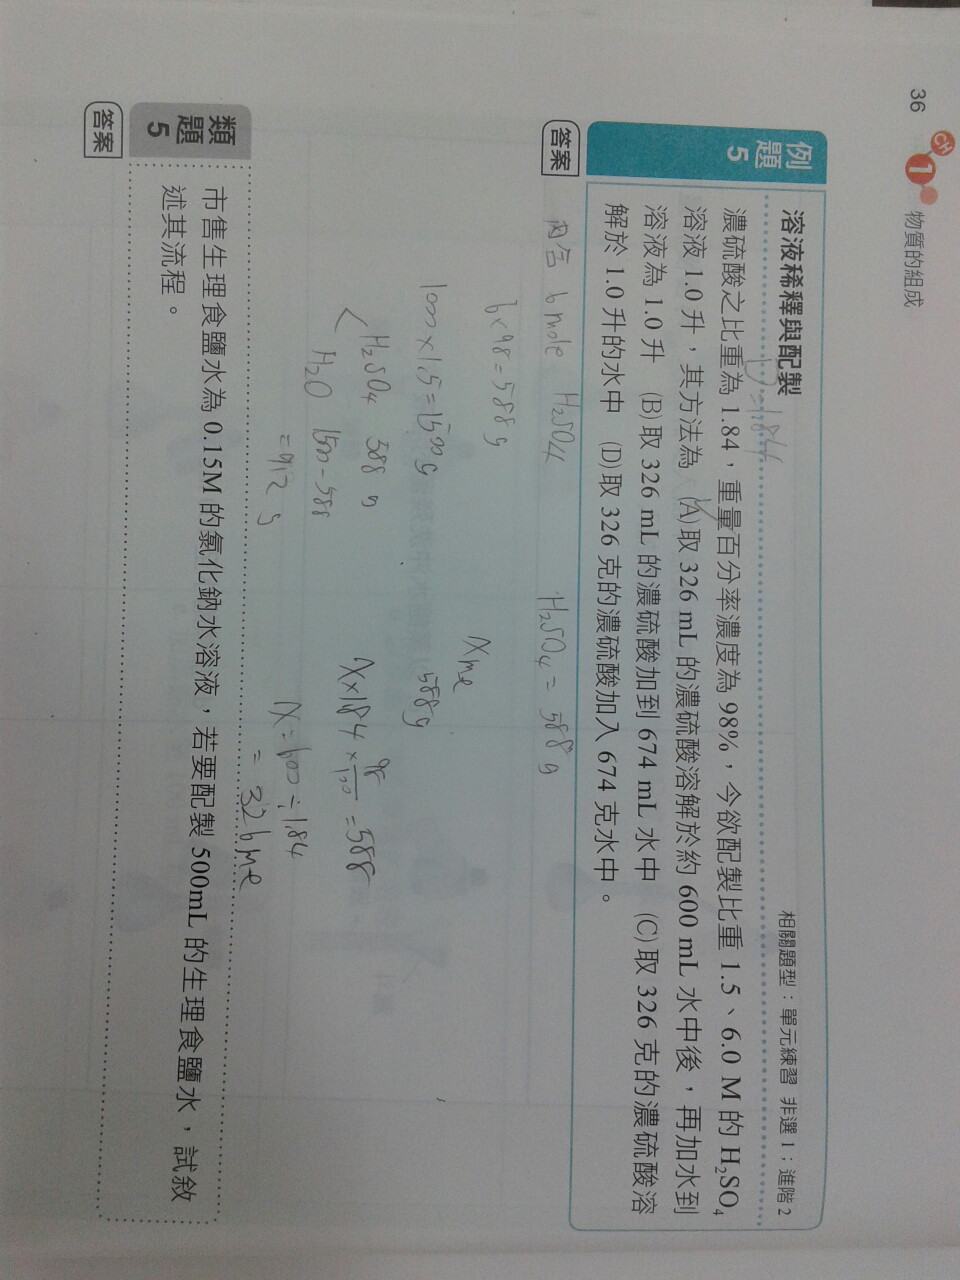 36
CH 1 物質的組成
例題 5
溶液稀釋與配製
相關題型：單元練習 非選 1；進階 2
D=1.84
濃硫酸之比重為 1.84，重量百分率濃度為 98%，今欲配製比重 1.5、6.0 M 的 H₂SO₄
溶液 1.0 升，其方法為 (A)取 326 mL 的濃硫酸溶解於約 600 mL 水中後，再加水到
溶液為 1.0 升 (B)取 326 mL 的濃硫酸加到 674 mL 水中 (C)取 326 克的濃硫酸溶
解於 1.0 升的水中 (D)取 326 克的濃硫酸加入 674 克水中。
答案
內含 6 mole H₂SO₄
6×98=588 g
1000×1.5=1500 g
H₂SO₄ 588 g
H₂O 1500-588
=912 g
H₂SO₄ = 588 g
X mL
588 g
X×1.84×98/100=588
X=600÷1.84
= 326 mL
類題 5
市售生理食鹽水為 0.15M 的氯化鈉水溶液，若要配製 500mL 的生理食鹽水，試敘
述其流程。
答案